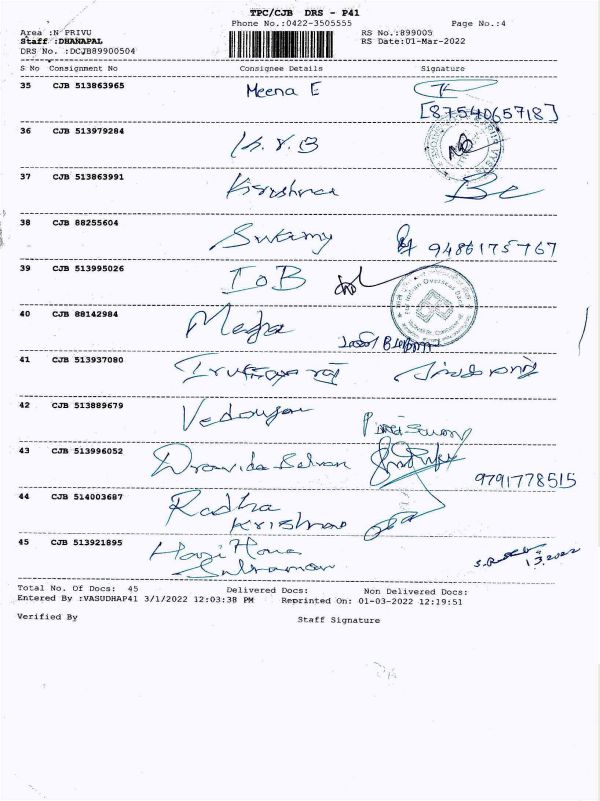 TPC/CJB DRS - P41
Phone No.:0422-3505555 Page No.:4
Area :N PRIVU RS No.:899005
Staff :DHANAPAL RS Date:01-Mar-2022
DRS No. :DCJB89900504
S No Consignment No Consignee Details Signature
35 CJB 513863965 Meena E
[8754065718]
36 CJB 513979284 K.V.B
37 CJB 513863991 Krishna
38 CJB 88255604 Swamy 9486175767
39 CJB 513995026 IOB
Indian Overseas Bank
40 CJB 88142984 Megha
41 CJB 513937080
42 CJB 513889679
43 CJB 513996052 Dravida Selvan
9791778515
44 CJB 514003687 Radha
Krishnan
45 CJB 513921895 Hari Hara
Subraman
1.3.2022
Total No. Of Docs: 45 Delivered Docs: Non Delivered Docs:
Entered By :VASUDHAP41 3/1/2022 12:03:38 PM Reprinted On: 01-03-2022 12:19:51
Verified By Staff Signature